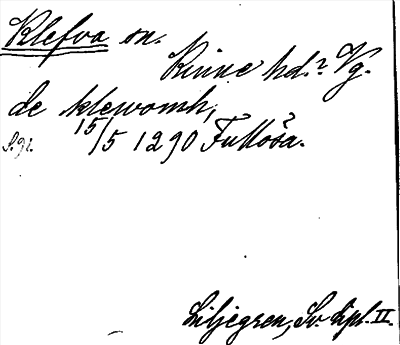 Klefva sn.
Kinne hd.? Vg.
de klewomsh,
15/5 1290 Fullösa.
S.gr.
Liljegren, Sv. dipl. II.